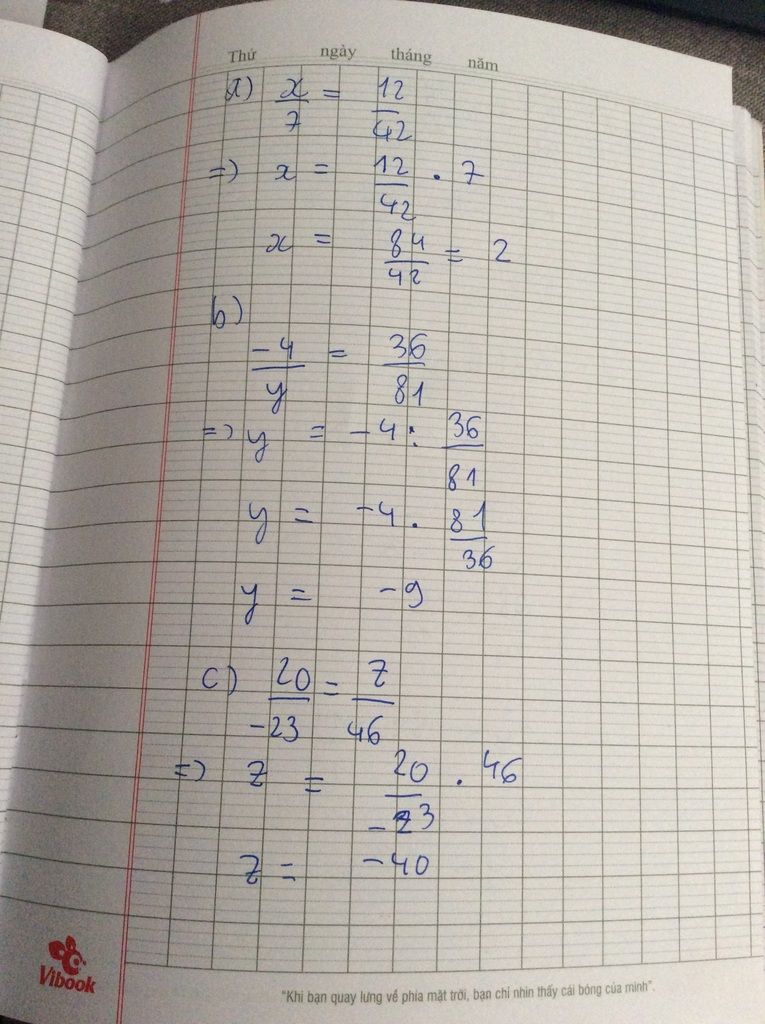 Thứ ngày tháng năm
a) x/7 = 12/42
=) x = 12/42 . 7
x = 84/42 = 2
b)
-4/y = 36/81
=) y = -4 : 36/81
y = -4 . 81/36
y = -9
c) 20/-23 = z/46
=) z = 20/-23 . 46
z = -40
Vibook
"Khi bạn quay lưng về phía mặt trời, bạn chỉ nhìn thấy cái bóng của mình".